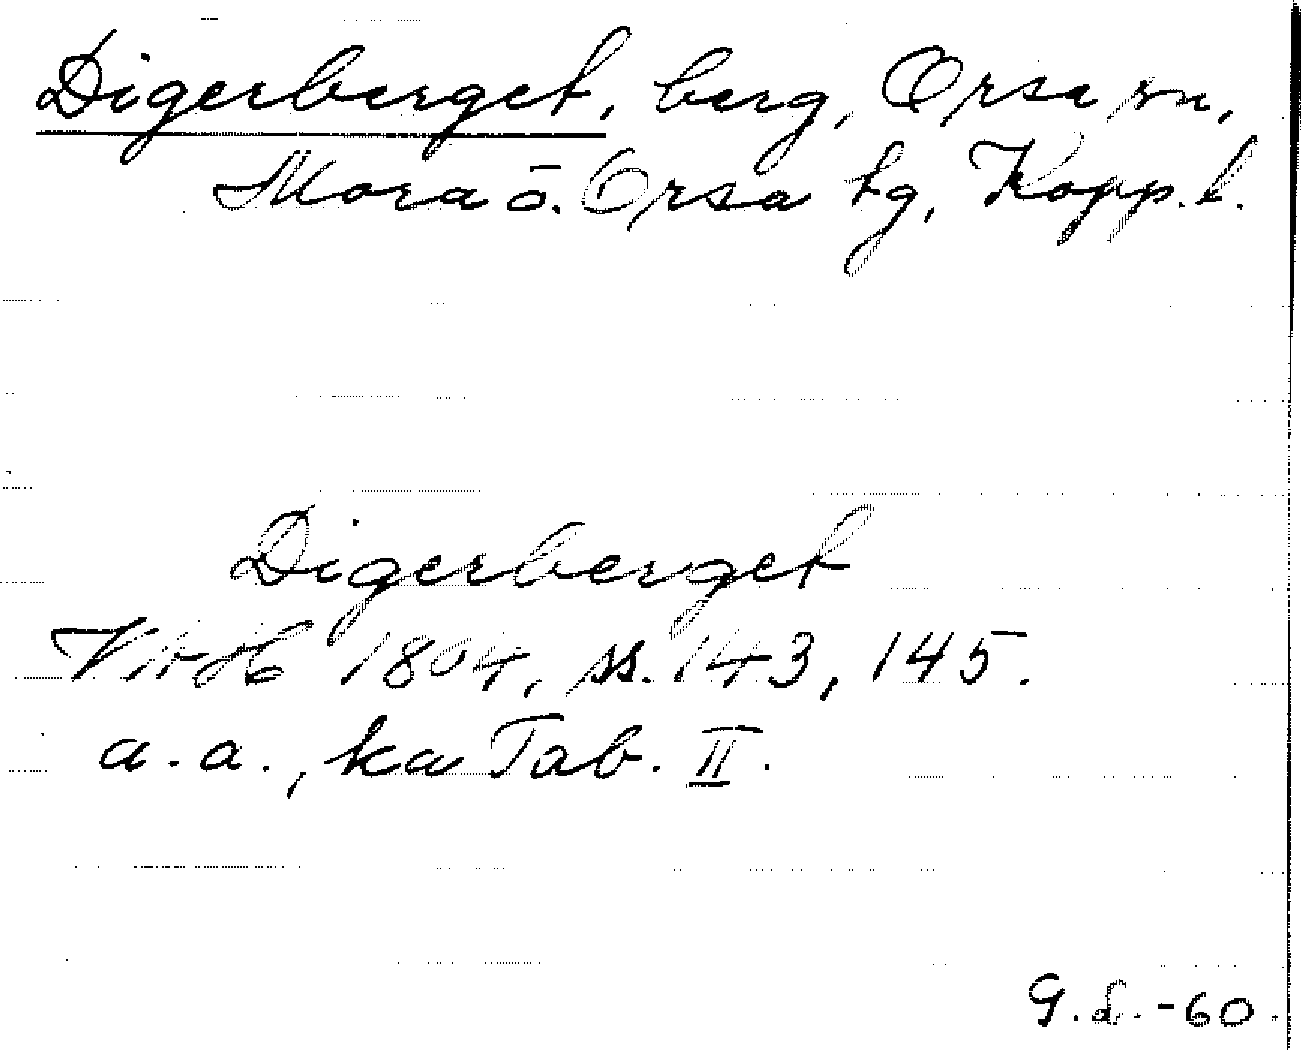 Digerberget, berg, Orsa sn,
Mora o. Orsa tg, Kopp. l.
Digerberget
VittH 1804, ss. 143, 145.
a. a., ka Tab. II.
G. L. -60.